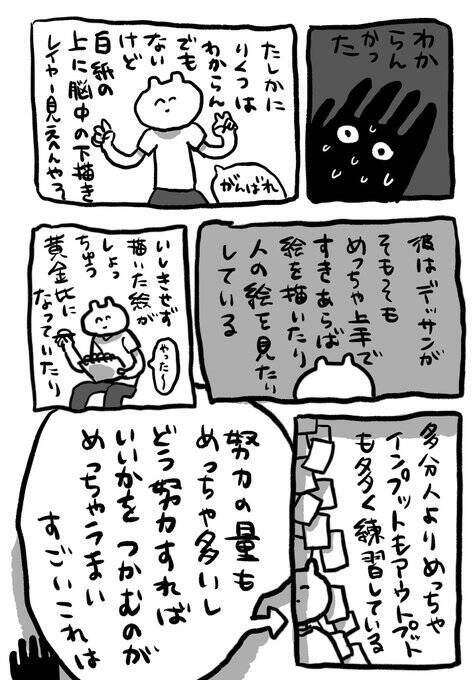 わか
らん
かっ
た
たしかに
りくつは
わからん
でも
ないけど
白紙の
上に脳中の下描き
レイヤー見えへんやろ
がんばれ
彼はデッサンが
そもそも
めっちゃ上手で
すきあらば
絵を描いたり
人の絵を見たり
している
いしきせず
描いた絵が
しょっ
ちゅう
黄金比に
なっていたり
やった〜
多分人よりめっちゃ
インプットもアウトプット
も多く練習している
努力の量も
めっちゃ多いし
どう努力すれば
いいかを つかむのが
めっちゃうまい
すごいこれは